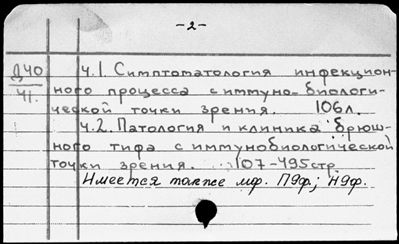 -2-
Д40 ч.1. Симптоматология инфекцион-
41. ного процесса с иммуно-биологи-
ческой точки зрения. 106л.
ч.2. Патология и клиника брюш-
ного тифа с иммунобиологической
точки зрения. 107-495стр
Имеется также мф. П9ф.; Н9ф.